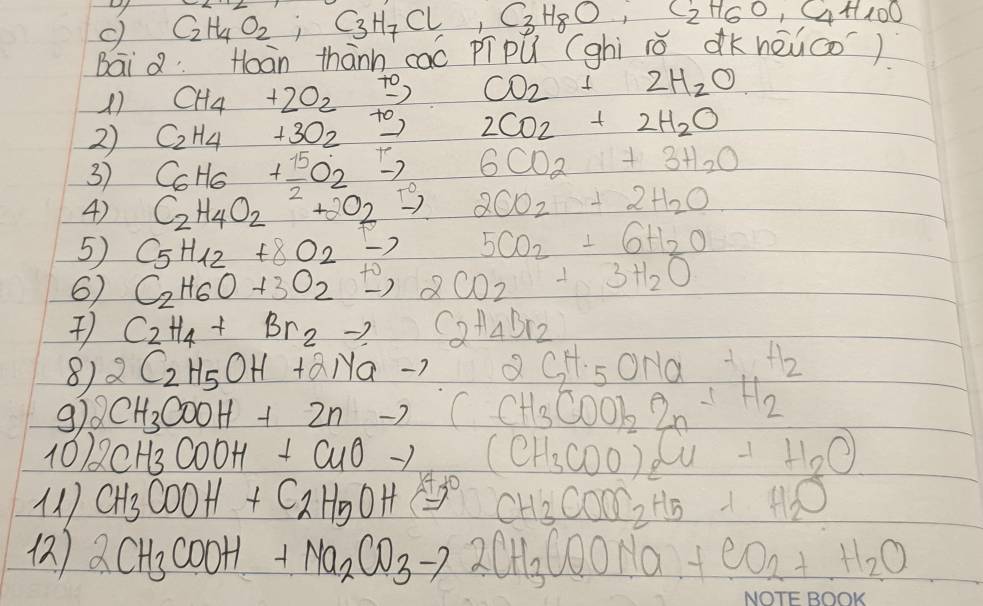 c) C2H4O2; C3H7Cl, C3H8O; C2H6O, C4H10O
Bài 2: Hoàn thành các PTPƯ (ghi rõ đk nếu có)
1) CH4 + 2O2 t0→ CO2 + 2H2O
2) C2H4 + 3O2 t0→ 2CO2 + 2H2O
3) C6H6 + 15/2 O2 t0→ 6CO2 + 3H2O
4) C2H4O2 + 2O2 t0→ 2CO2 + 2H2O
5) C5H12 + 8O2 t0→ 5CO2 + 6H2O
6) C2H6O + 3O2 t0→ 2CO2 + 3H2O
7) C2H4 + Br2 → C2H4Br2
8) 2C2H5OH + 2Na → 2C2H5ONa + H2
9) 2CH3COOH + Zn → (CH3COO)2Zn + H2
10) 2CH3COOH + CuO → (CH3COO)2Cu + H2O
11) CH3COOH + C2H5OH ⇌ CH3COOC2H5 + H2O
12) 2CH3COOH + Na2CO3 → 2CH3COONa + CO2 + H2O
NOTE BOOK